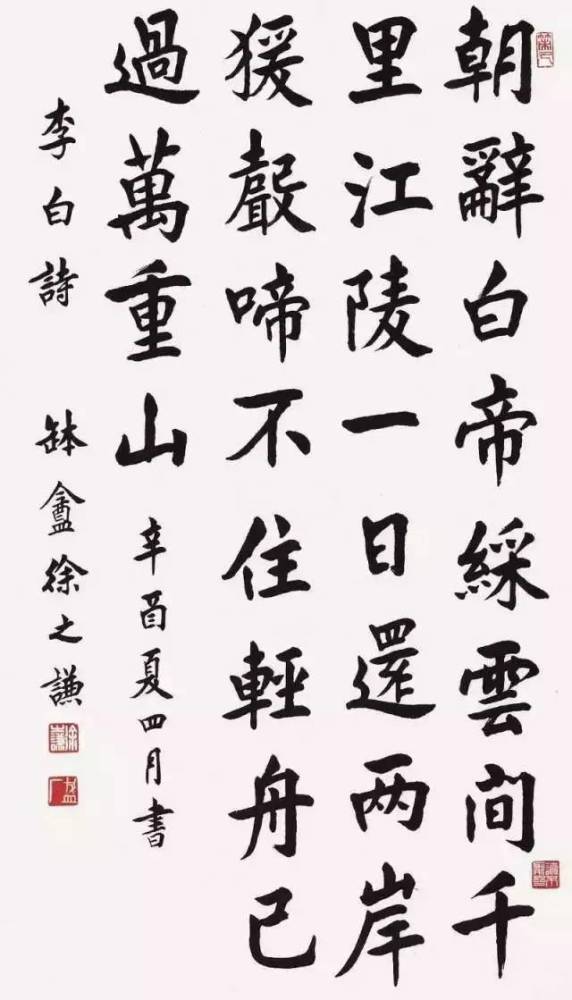 朝辭白帝綵雲間千
里江陵一日還两岸
猨聲啼不住輕舟已
過萬重山
辛酉夏四月書
李白詩
缽盦徐之謙